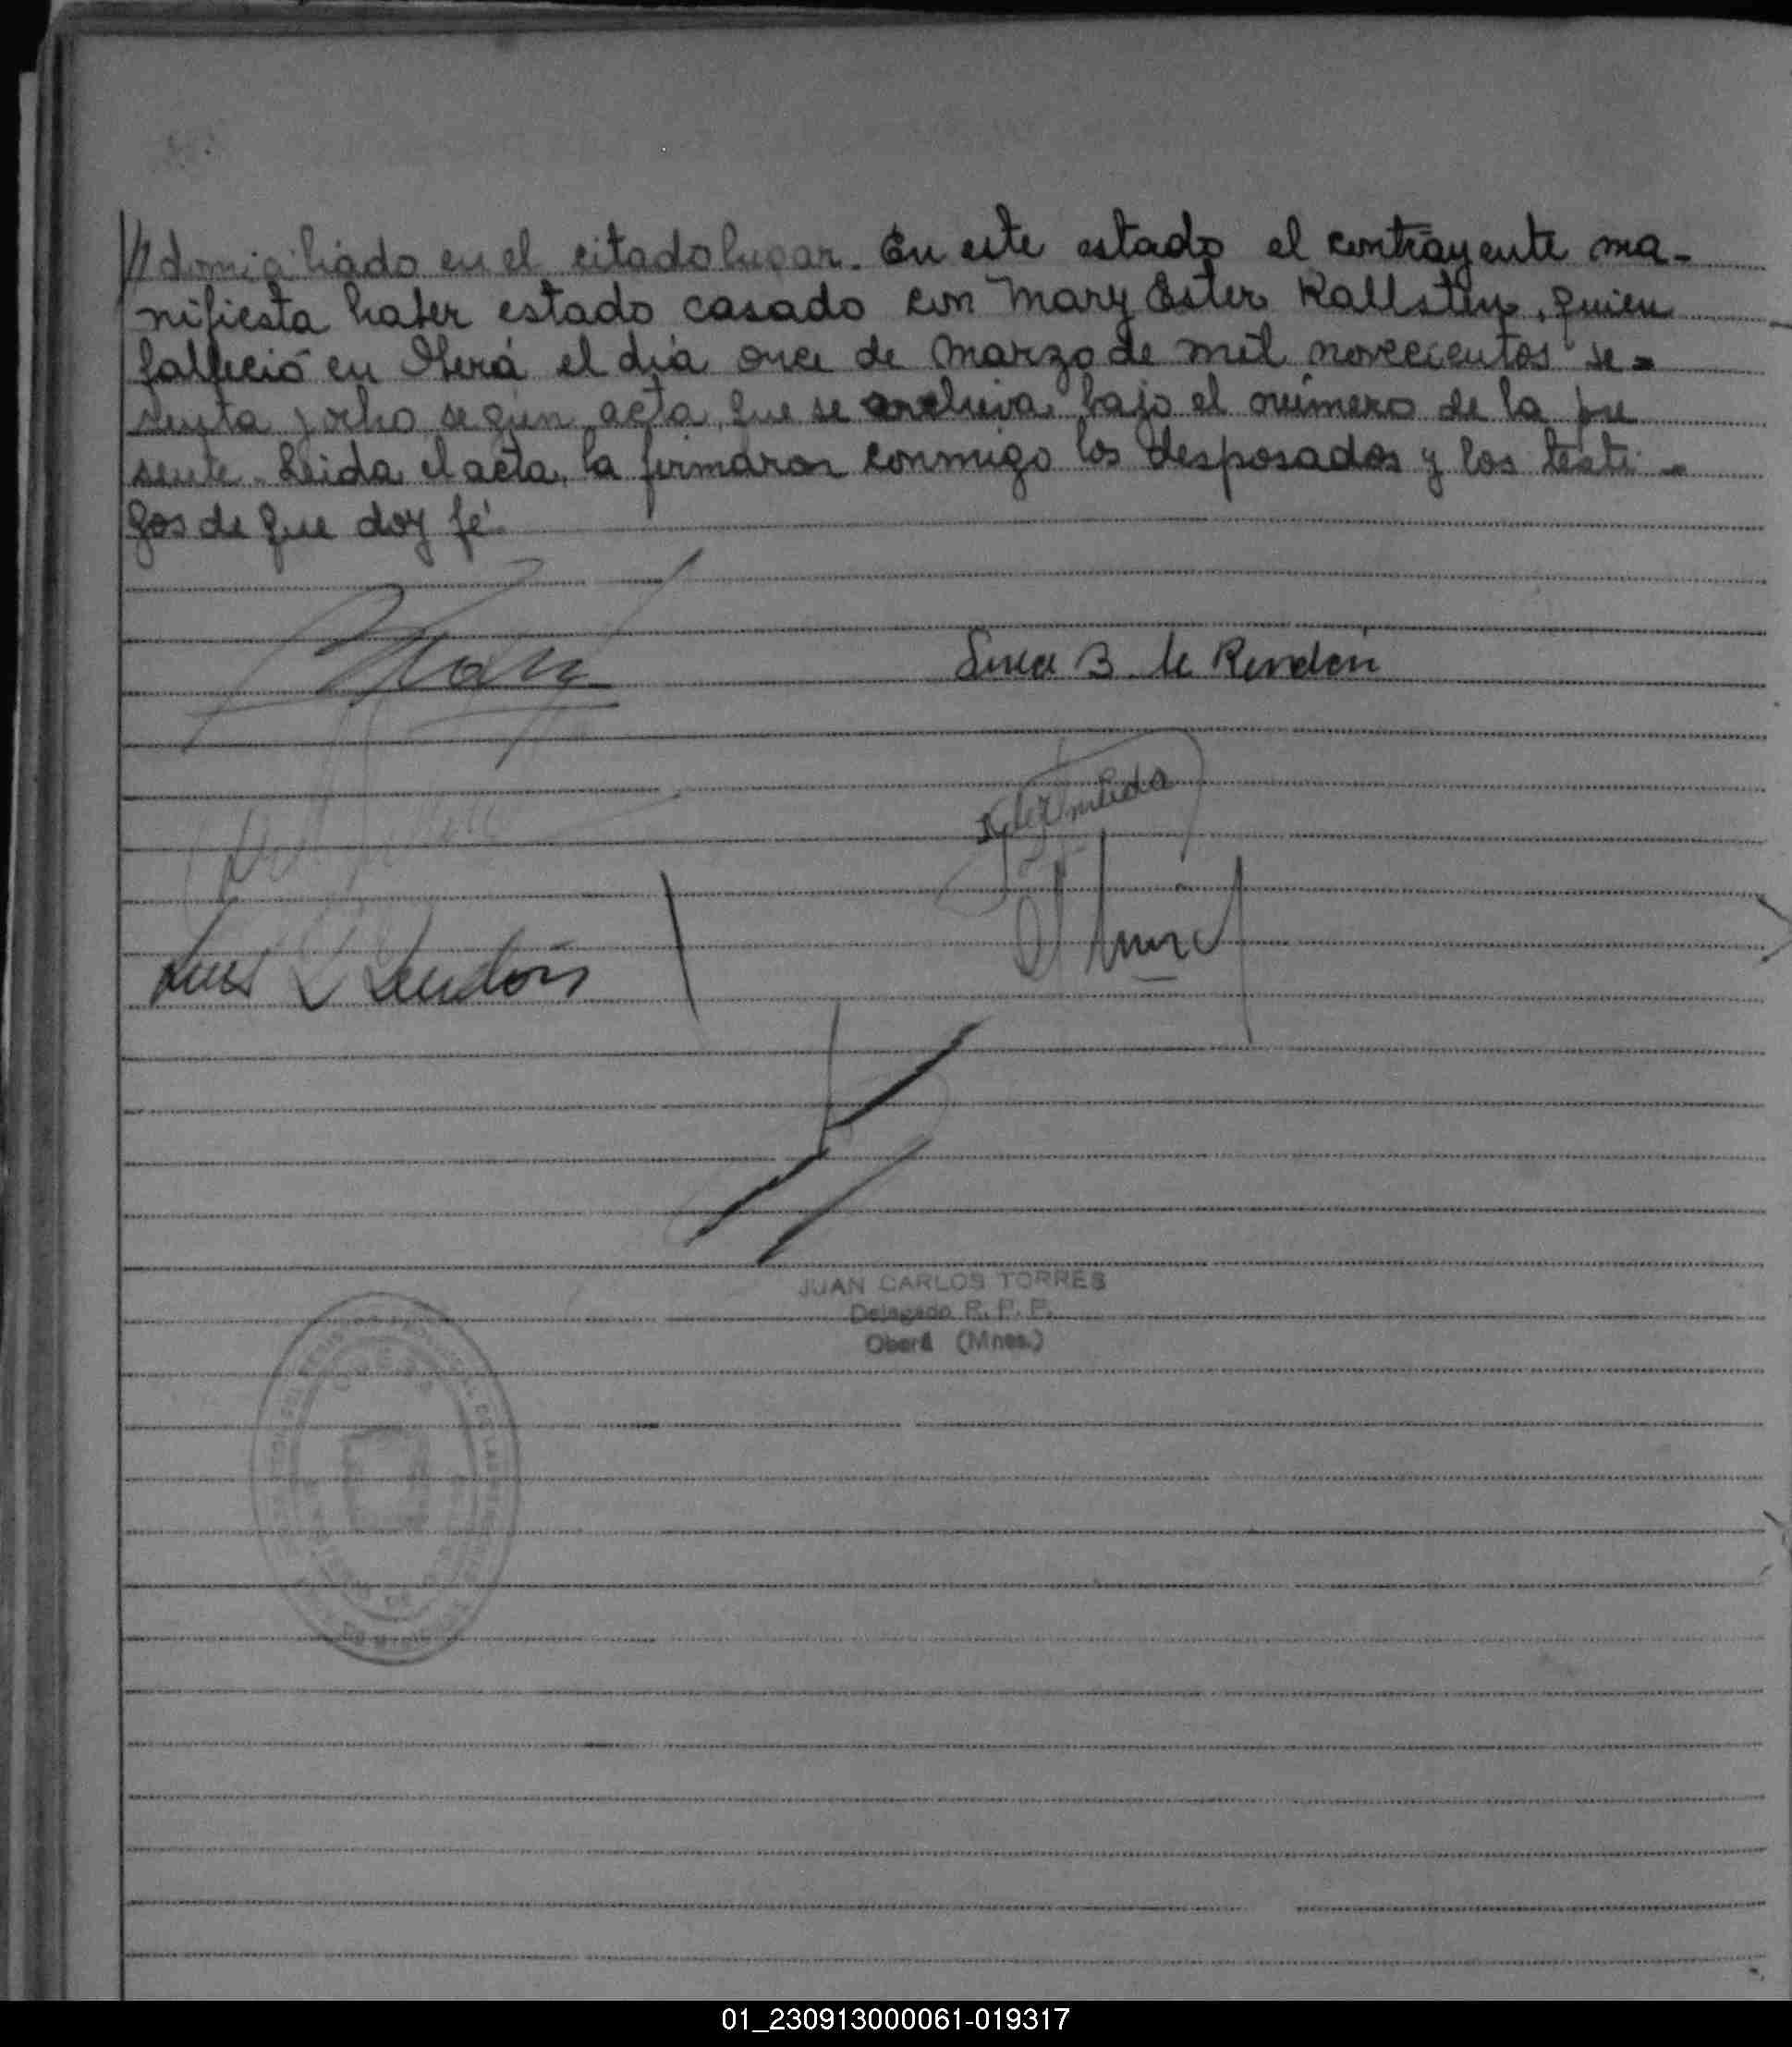 // domiciliado en el citado lugar. En este estado el contrayente ma-
nifiesta haber estado casado con Mary Ester Kallsten, quien
falleció en Oberá el día once de Marzo de mil novecientos se=
senta y ocho según acta que se archiva bajo el número de la pre
sente. Leida el acta, la firmaron conmigo los desposados y los testi-
gos de que doy fé.
B de Rendón
Luis Rendón
JUAN CARLOS TORRES
Delegado R. P. P.
Oberá (Mnes.)
01_230913000061-019317